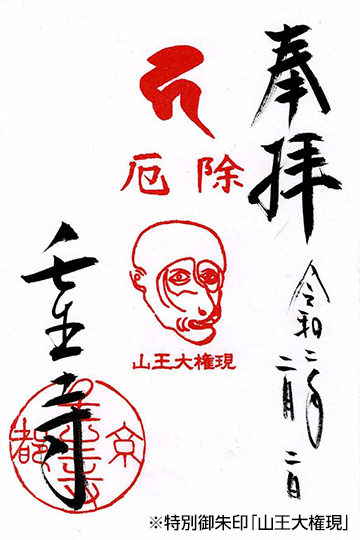 奉拝
令和二年
二月二日
厄除
山王大権現
壬生寺
京都
壬生寺
※特別御朱印「山王大権現」